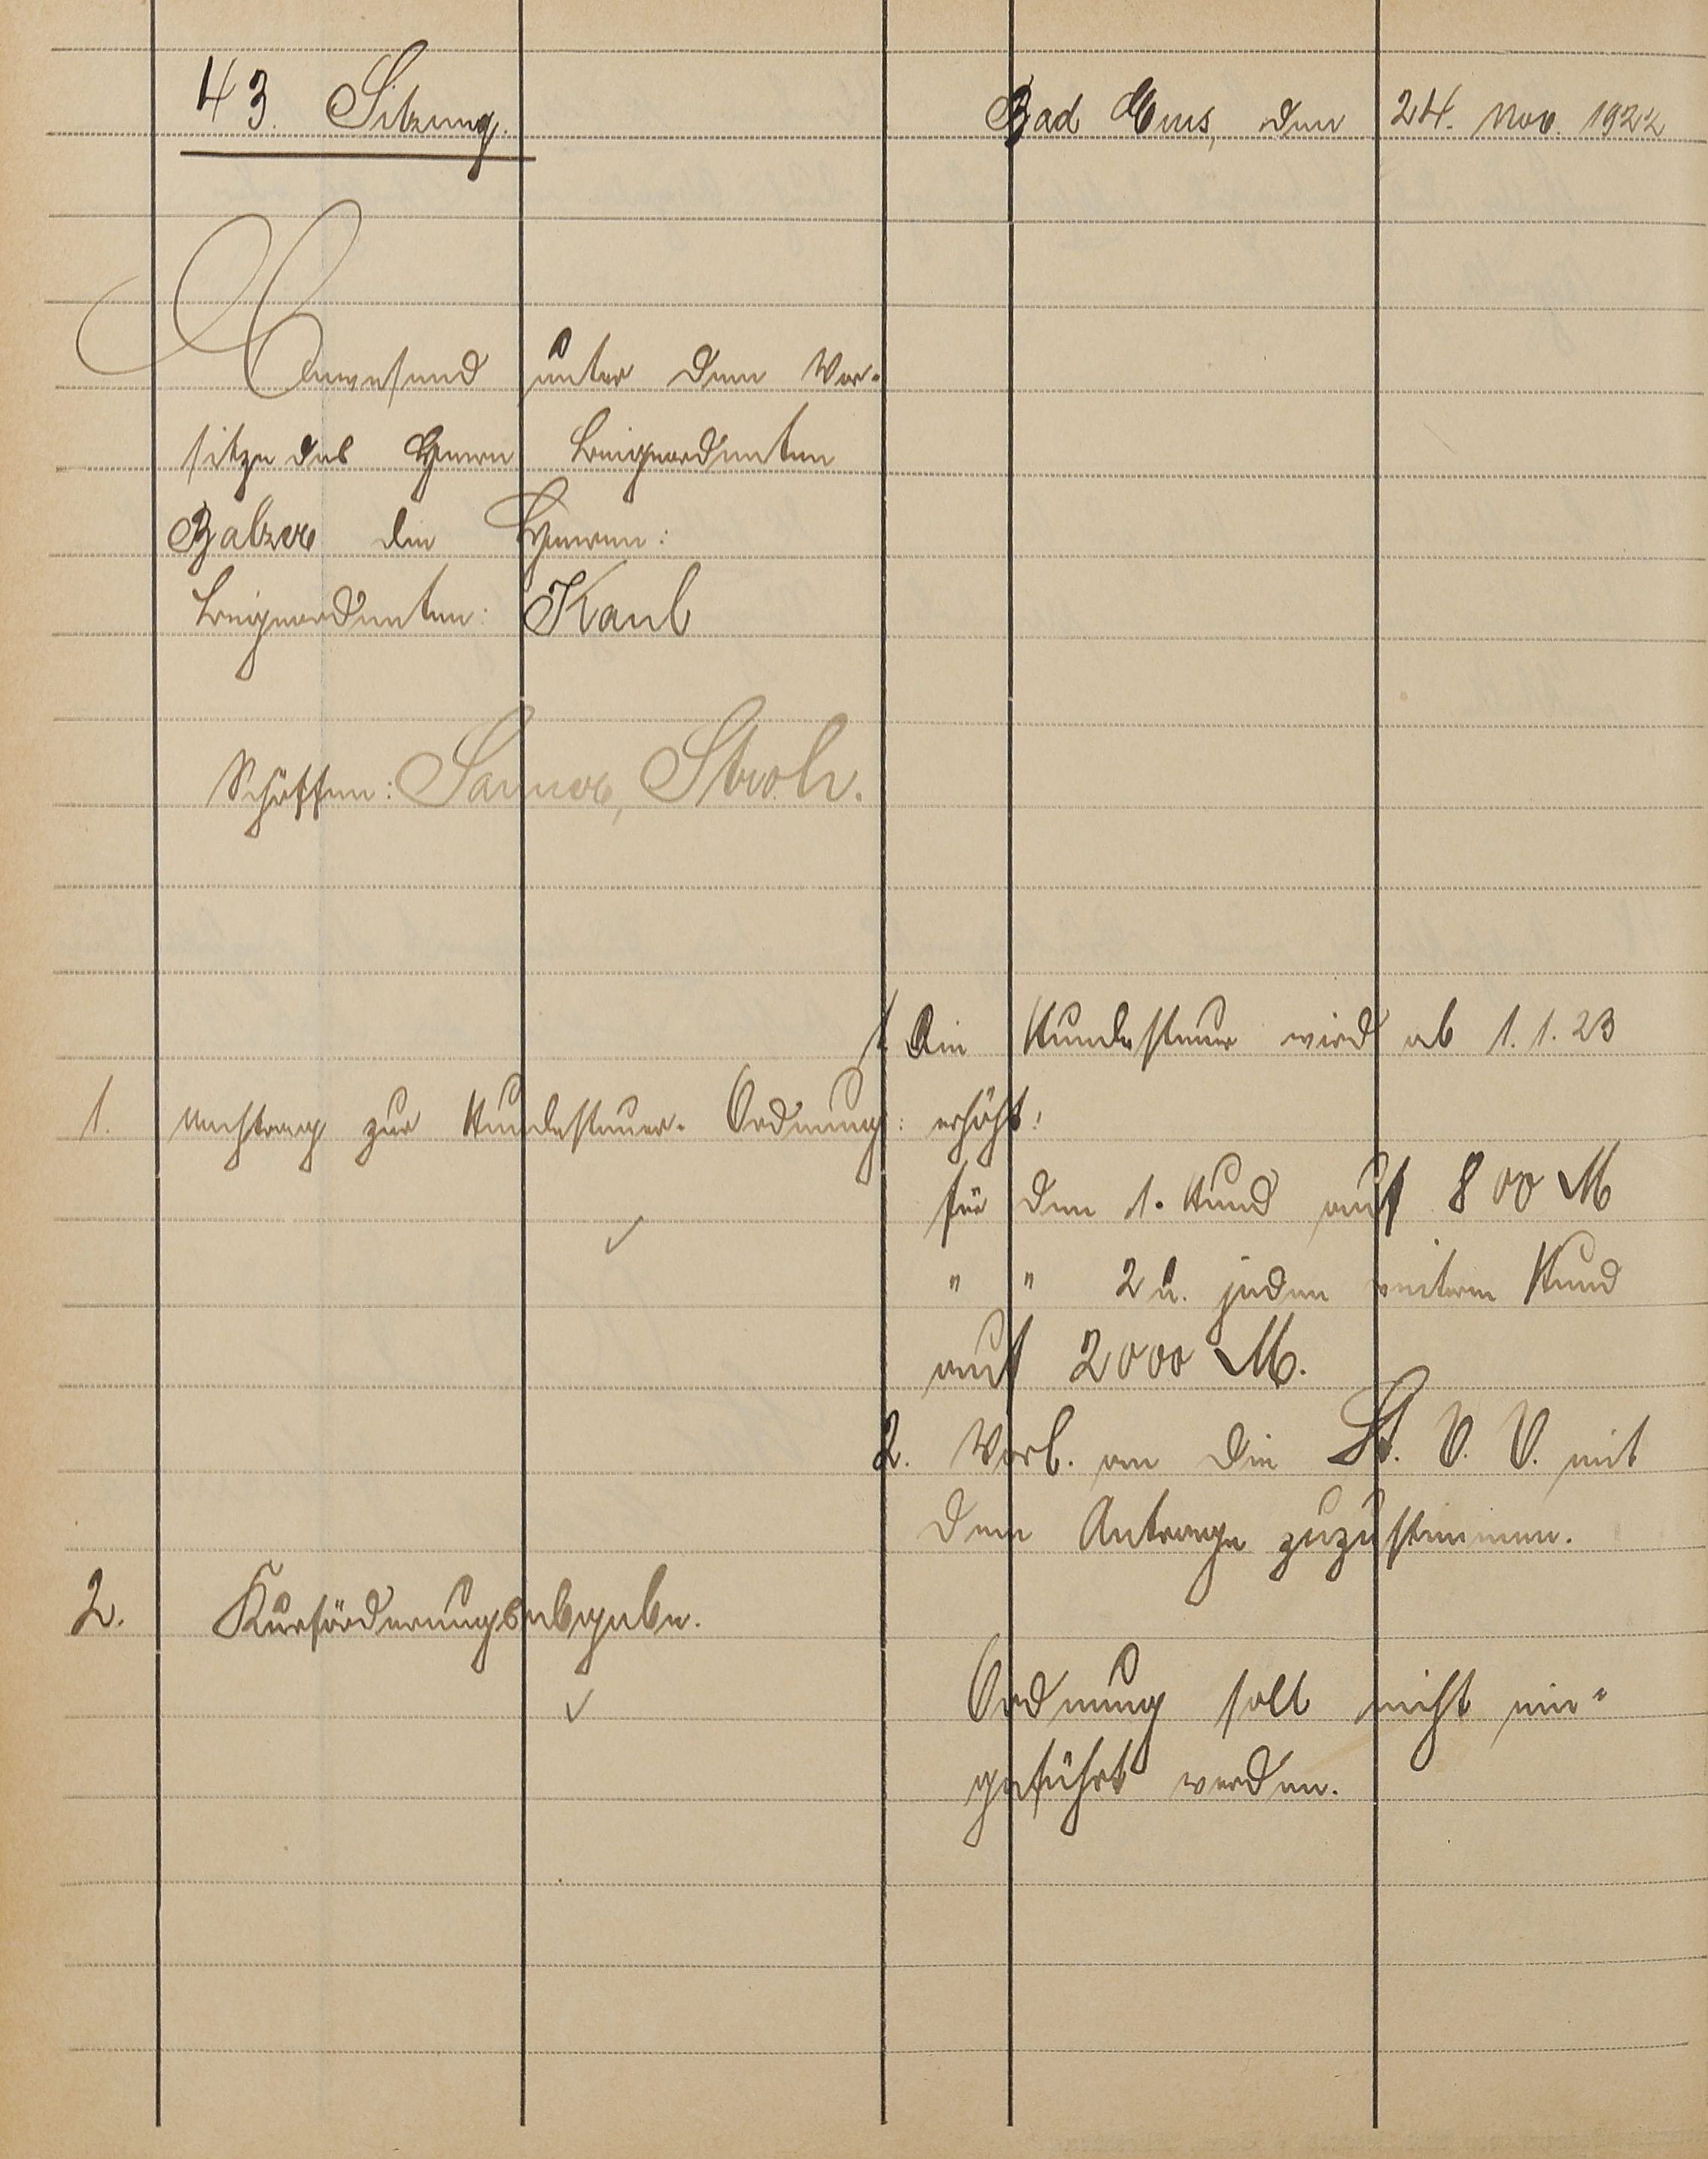 43. Sitzung.
Bad Ems, den 24. Nov. 1922
Anwesend unter dem Vor-
sitze des Herrn Beigeordneten
Balzer die Herren:
Beigeordneten: Kaul
Schöffen: Sauer, Stroh.
1. Die Hundesteuer wird ab 1.1.23
1. Nachtrag zur Hundesteuer-Ordnung: erhöht:
für den 1. Hund auf 800 M
" " 2 u. jeden weitern Hund
auf 2000 M.
2. Vorl. an die St. V. V. mit
dem Antrage zuzustimmen.
2. Kurförderungsabgabe.
Ordnung soll nicht ein-
geführt werden.